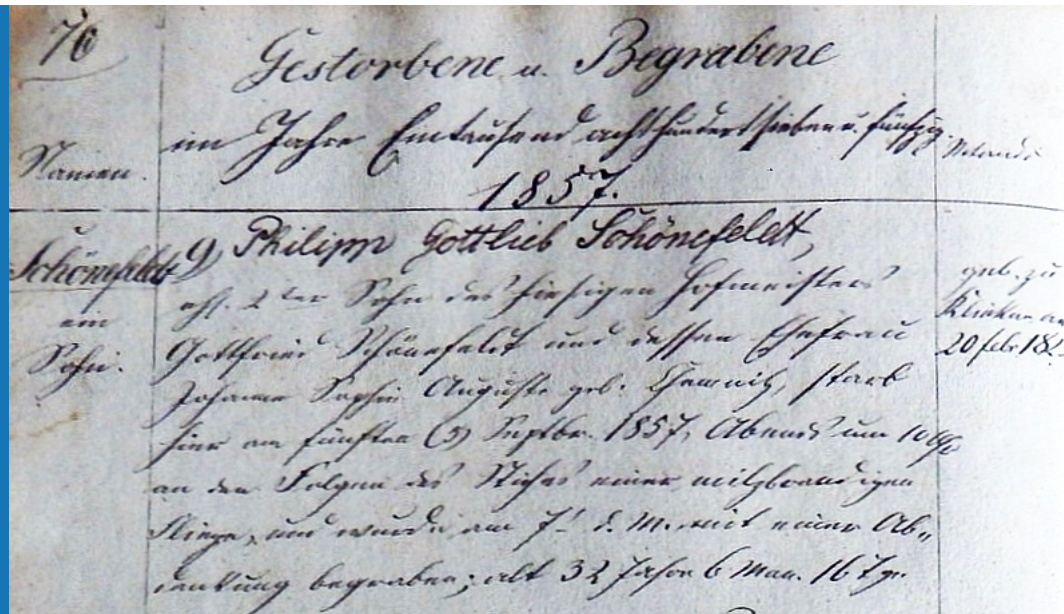 76
Gestorbene u. Begrabene
im Jahre Eintausend achthundert sieben u. fünfzig.
1857.
Namen.
Notanda
Schönefeldt
ein
Sohn.
9) Philipp Gottlieb Schönefeldt,
ehl. 2ter Sohn des hiesigen Hofmeisters
Gottfried Schönefeldt und dessen Ehefrau
Johanne Sophie Auguste geb. starb
hier am fünften (5) Septbr. 1857, Abends um 10 Uhr
an den Folgen des Stiches einer milzbrandigen
Fliege, und wurde am 7t d. M. mit einer Ab„
dankung begraben; alt 32 Jahre 6 Mon. 16 Tge.
geb. zu
Klieken am
20 febr 18